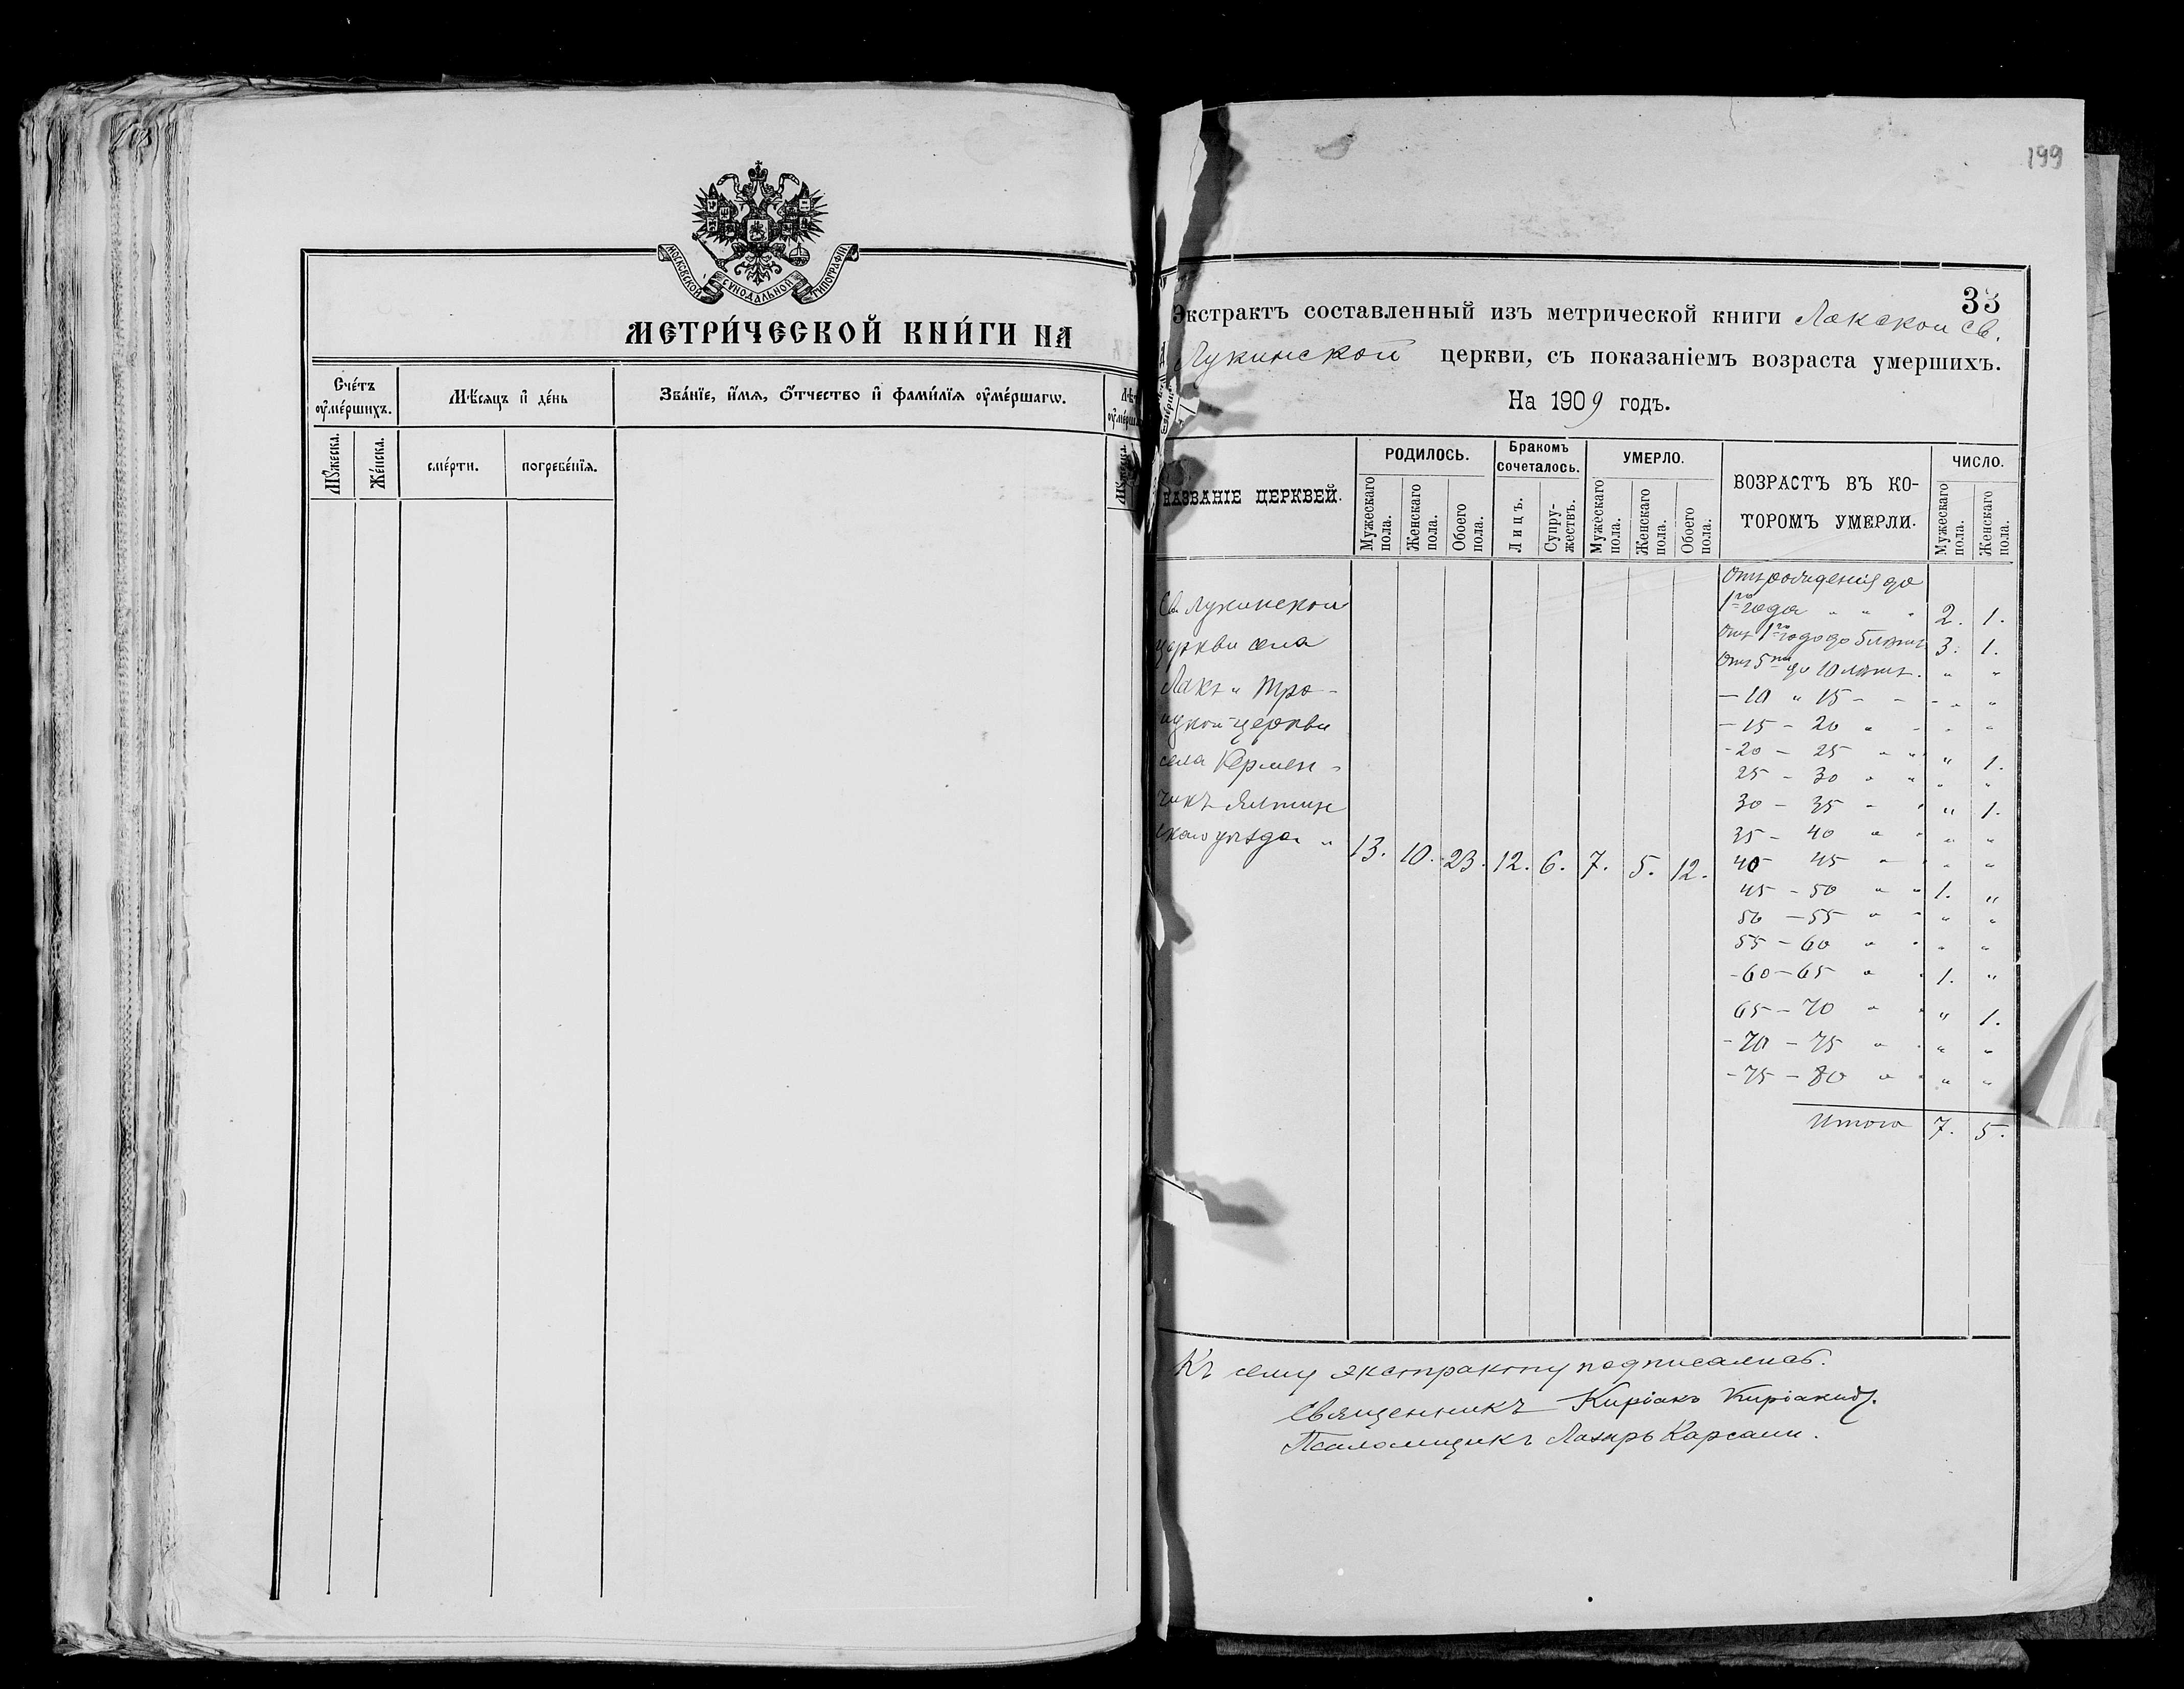 МОСКОВСКОЙ СѴНОДАЛЬНОЙ ТИПОГРАФІИ
МЕТРИ́ЧЕСКОЙ КНИ́ГИ НА
Сче́тъ ᲂу҆ме́ршихъ.
Мѣсяцъ и҆ де́нь
Зва́нїе, и҆́мѧ, ѻ҆́тчество и҆ фами́лїѧ ᲂу҆ме́ршагѡ.
Мꙋ́жеска.
Же́нска.
сме́рти.
погребе́нїѧ.
199
33
Экстрактъ составленный изъ метрической книги Лакской Св.
Лукинской церкви, съ показаніемъ возраста умершихъ.
На 1909 годъ.
НАЗВАНІЕ ЦЕРКВЕЙ.
РОДИЛОСЬ.
Мужескаго пола.
Женскаго пола.
Обоего пола.
Бракомъ сочеталось.
Лицъ.
Супружествъ.
УМЕРЛО.
Мужескаго пола.
Женскаго пола.
Обоего пола.
ВОЗРАСТЪ ВЪ КО-
ТОРОМЪ УМЕРЛИ.
ЧИСЛО.
Мужескаго пола.
Женскаго пола.
Св. Лукинской
церкви села
Лакъ и Тро-
ицкой церкви
села Кермен-
чикъ Ялтин
скаго уѣзда " 13. 10. 23. 12. 6. 7. 5. 12.
Отъ рожденія до
1го года " " " 2. 1.
Отъ 1го года до 5 лѣтъ 3. 1.
Отъ 5ти до 10 лѣтъ. " "
— 10 " 15 - - " "
— 15 - 20 " - " "
- 20 - 25 " " " 1.
25 - 30 " " " "
30 - 35 - " " 1.
35 - 40 " " " "
40 45 - " " "
45 - 50 " " 1. "
50 - 55 " " " "
55 - 60 " " " "
- 60 - 65 " " 1. "
65 - 70 " " " 1.
- 70 - 75 " " " "
- 75 - 80 " " " "
Итого 7. 5.
Къ сему экстракту подписались.
Священникъ Киріакъ Киріакиди.
Псаломщикъ Лазарь Карсаии.